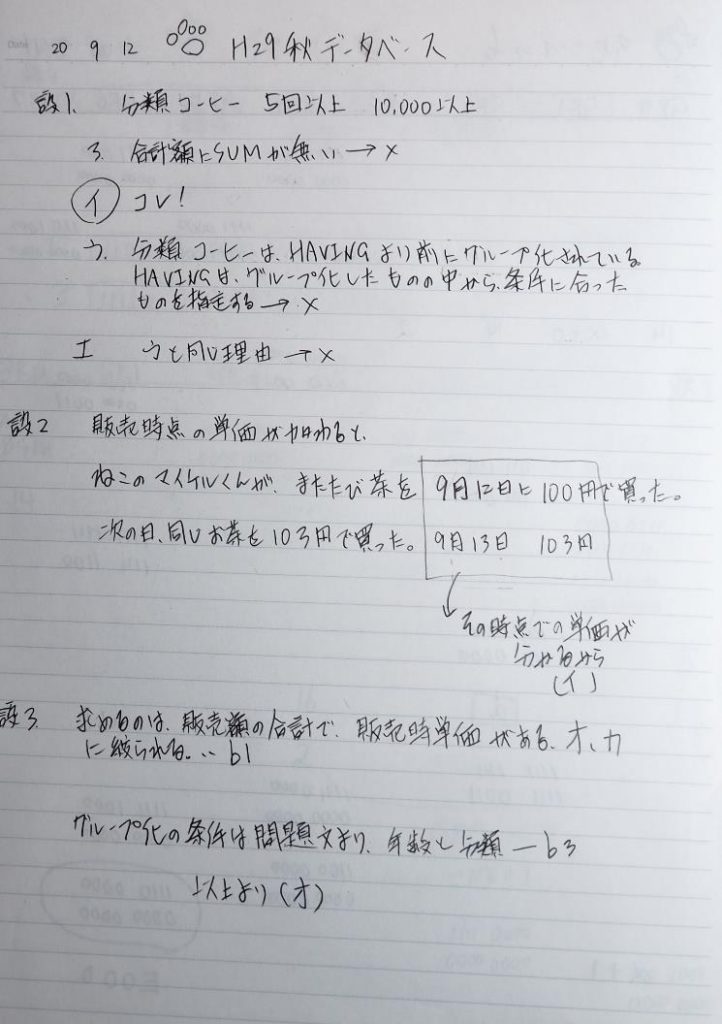 20 9 12 H29秋データベース
設1. 分類コーヒー 5回以上 10,000以上
ろ. 合計額にSUMが無い→×
イ コレ!
う. 分類コーヒーは、HAVINGより前にグループ化されている。
HAVINGは、グループ化したものの中から、条件に合った
ものを指定する→×
エ うと同じ理由→×
設2 販売時点の単価が加わると、
ねこのマイケルくんが、またたび茶を 9月12日に100円で買った。
次の日、同じお茶を103円で買った。 9月13日 103円
その時点での単価が
分かるから
(イ)
設3 求めるのは、販売額の合計で、販売時単価がある、オ、カ
に絞られる。∴b1
グループ化の条件は問題文より、年数と分類―b3
以上より(オ)